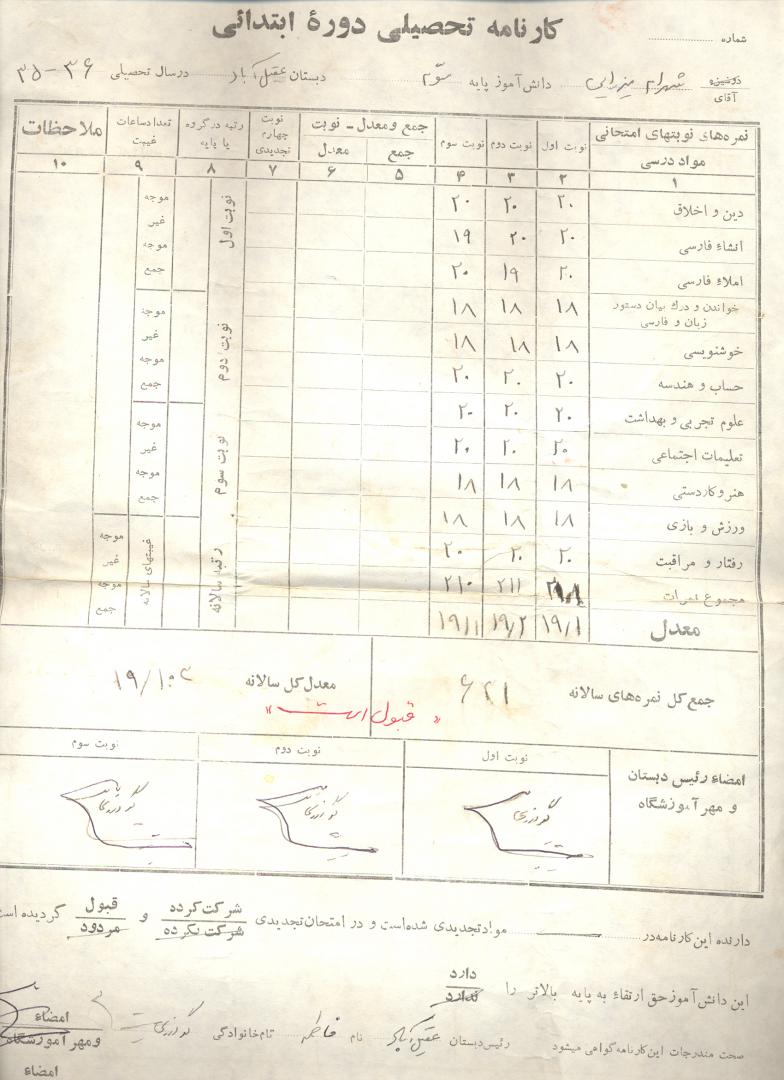 کارنامه تحصیلی دورهٔ ابتدائی
شماره
دوشیزه
آقای شهرام میزرایی دانش‌آموز پایه سوّم دبستان عقیل آباد در سال تحصیلی ۳۶-۳۵
نمره‌های نوبتهای امتحانی نوبت اول نوبت دوم نوبت سوم جمع و معدل - نوبت نوبت چهارم تجدیدی رتبه در گروه یا پایه تعداد ساعات غیبت ملاحظات
مواد درسی جمع معدل
۱ ۲ ۳ ۴ ۵ ۶ ۷ ۸ ۹ ۱۰
دین و اخلاق ۲۰ ۲۰ ۲۰ نوبت اول موجه
انشاء فارسی ۲۰ ۲۰ ۱۹ غیر موجه
املاء فارسی ۲۰ ۱۹ ۲۰ جمع
خواندن و درك بیان دستور زبان و فارسی ۱۸ ۱۸ ۱۸ نوبت دوم موجه
خوشنویسی ۱۸ ۱۸ ۱۸ غیر موجه
حساب و هندسه ۲۰ ۲۰ ۲۰ جمع
علوم تجربی و بهداشت ۲۰ ۲۰ ۲۰ نوبت سوم موجه
تعلیمات اجتماعی ۲۰ ۲۰ ۲۰ غیر موجه
هنر و کاردستی ۱۸ ۱۸ ۱۸ جمع
ورزش و بازی ۱۸ ۱۸ ۱۸
رفتار و مراقبت ۲۰ ۲۰ ۲۰ رتبه سالانه غیبتهای سالانه موجه غیر موجه جمع
مجموع نمرات ۲۱۱ ۲۱۰
معدل ۱۹/۱ ۱۹/۲ ۱۹/۱
جمع کل نمره‌های سالانه ۶۳۱ معدل کل سالانه ۱۹/۱۰۳
« قبول است »
امضاء رئیس دبستان و مهر آموزشگاه نوبت اول نوبت دوم نوبت سوم
گودرزی گودرزی گودرزی
دارنده این کارنامه در مواد تجدیدی شده‌است و در امتحان تجدیدی شرکت کرده و قبول گردیده است
شرکت نکرده مردود
این دانش‌آموز حق ارتقاء به پایه بالاتر را دارد
ندارد
صحت مندرجات این کارنامه گواهی میشود رئیس دبستان عقیل آباد نام فاطمه نام خانوادگی گودرزی امضاء
و مهر آموزشگاه
امضاء